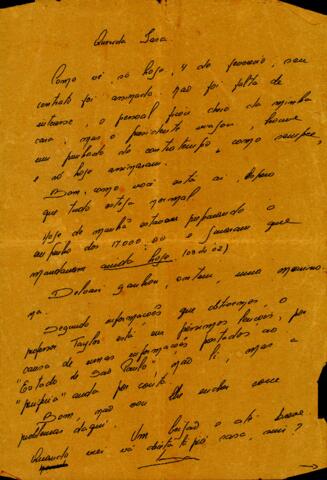 Querida Sara
Como vê só hoje, 4 de fevereiro, seu
contrato foi assinado não foi falta de
interesse, o pessoal ficou cheio da minha
cara, mas o presidente viajou houve
um punhado de contratempo, como sempre,
e só hoje assinaram.
Bom, como você está aí, espero
que tudo esteja normal
Hoje de manhã estavam preparando o
dos 17.000,00 e juraram que
mandariam ainda hoje. (03.02)
ganhou, ontem, uma menini-
na.
Segundo informações que obtivemos, o
professor Taylor está em péssimos lençóis, por
causa de umas informações prestadas ao
"Estado de São Paulo", não li, mas a
anda por conta.
Bom, não vou lhe encher com
problemas daqui. Um beijão e até breve
Quando vier vá direto p/ casa, sim?